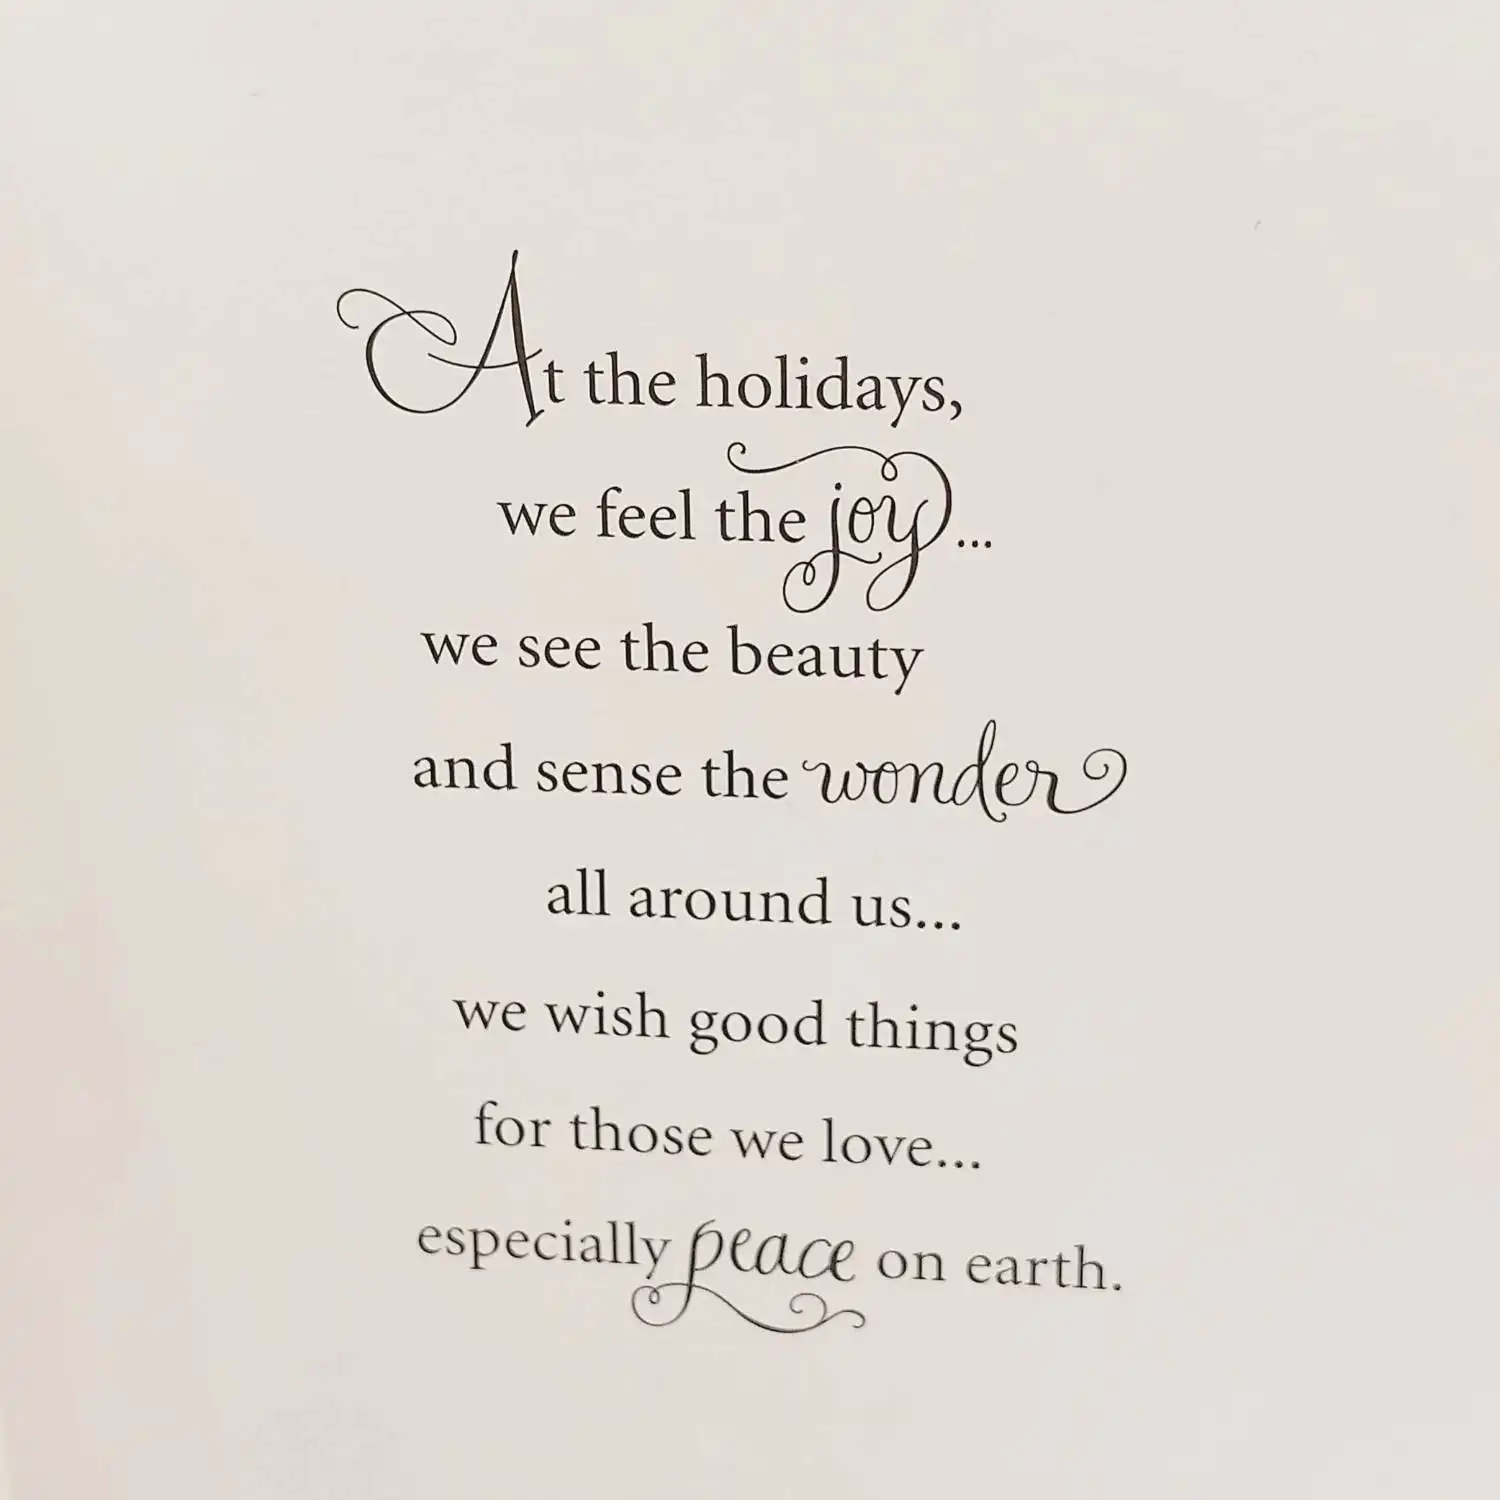 At the holidays,
we feel the joy...
we see the beauty
and sense the wonder
all around us...
we wish good things
for those we love...
especially peace on earth.